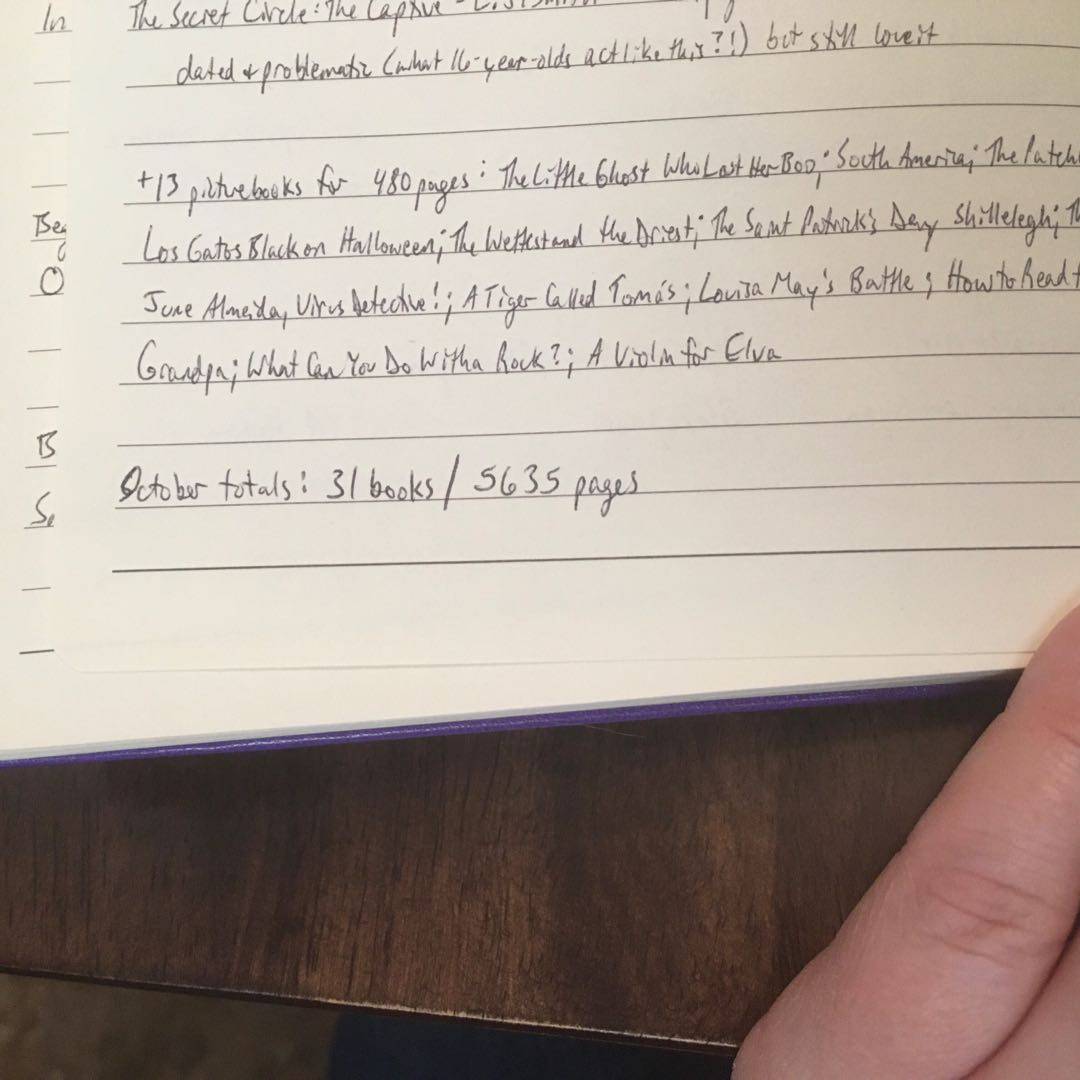 In
The Secret Circle: The Captive -
dated & problematic (what 16-year-olds act like this?!) but still love it
+13 picturebooks for 480 pages: The Little Ghost Who Lost Her Boo; South America; The Patch
Beg
Los Gatos Black on Halloween; The Wettest and the Driest; The Saint Patrick's Day Shillelegh; Th
O
June Almeida, Virus Detective!; A Tiger Called Tomás; Louisa May's Battle; How to Read t
Grandpa; What Can You Do With a Rock?; A Violin for Elva
B
October totals: 31 books / 5635 pages
Se